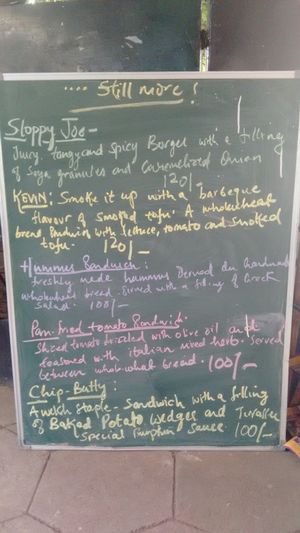 .... Still more!
Sloppy Joe -
Juicy, tangy and Spicy Burger with a filling
of Soya granules and Caramelized Onion
120/-
KEVIN: Smoke it up with a barbeque
flavour of Smoked tofu. A wholewheat
bread Sandwich with lettuce, tomato and smoked
tofu. 120/-
Hummus Sandwich:
freshly made hummus Served on handmade
wholewheat bread. Served with a filling of Greek
Salad. 100/-
Pan-fried tomato Sandwich:
Sliced tomato drizzled with olive oil and
seasoned with italian mixed herb. Served
between whole-wheat bread. 100/-
Chip-Butty:
A welsh staple - Sandwich with a filling
of Baked Potato wedges and
special Pumpkin Sauce. 100/-